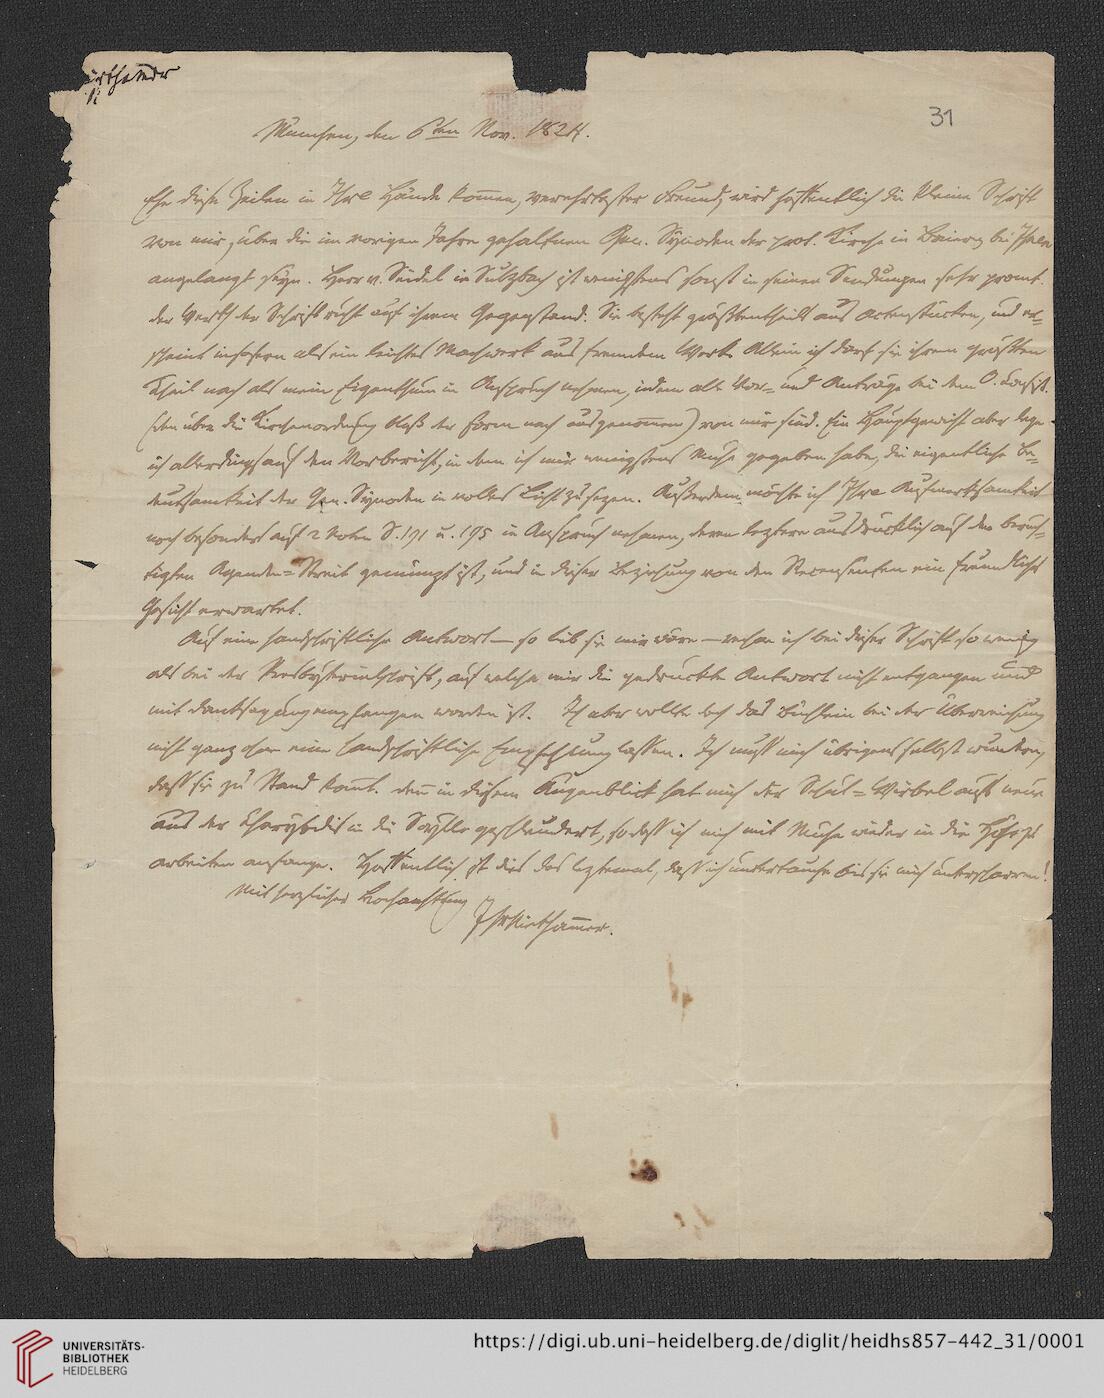 Niethammer
31
München, den 6ten Nov. 1824.
Ehe diese Zeilen in Ihre Hände kommen, verehrtester Freund, wird hoffentlich die kleine Schrift
von mir, über die im vorigen Jahre gehaltenen Gen. Synoden der prot. Kirche in Baiern bei Ihnen
angelangt seyn. Herr v. Seidel in Sulzbach ist wenigstens sonst in seinen Sendungen sehr promt.
der Werth der Schrift ruht auf ihrem Gegenstand. Sie besteht größtentheils aus Actenstücken, und er-
scheint insofern als ein leichtes Machwerk aus fremdem Werk. Allein ich darf sie ihrem größten
Theil nach als mein Eigenthum in Anspruch nehmen, indem alle Vor- und Anträge bei dem O. Consist.
(den über die Kirchenordnung blos der Form nach ausgenommen) von mir sind. Ein Hauptgewicht aber lege
ich allerdings auf den Vorbericht, in dem ich mir wenigstens Mühe gegeben habe, die eigentliche Be-
deutsamkeit der Gen. Synoden in volles Licht zu sezen. Außerdem möchte ich Ihre Aufmerksamkeit
noch besonders auf 2 Noten S. 191 u. 195 in Anspruch nehmen, deren leztere ausdrücklich auf den berüch-
tigten Agenden-Streit gemünzt ist, und in dieser Beziehung von den Recensenten ein freundliches
Gesicht erwartet.
Auf eine handschriftliche Antwort — so lieb sie mir wäre — rechne ich bei dieser Schrift so wenig
als bei der Presbyterialschrift, auf welche mir die gedruckte Antwort nicht entgangen und
mit Danksagung empfangen worden ist. Ich aber wollte doch das Büchlein bei der Überreichung
nicht ganz ohne eine handschriftliche Empfehlung lassen. Ich muß mich übrigens selbst wundern,
daß sie zu Stand kommt. denn in diesem Augenblick hat mich der Schul-Wirbel aufs neue
aus der Charybdis in die Scylla geschleudert, so daß ich mich mit Mühe wieder in die Höhe zu
arbeiten anfange. Hoffentlich ist dies das leztemal, daß ich untertauche bis sie mich unterscharren!
Mit herzlicher Hochachtung
Ihr Niethammer.
UNIVERSITÄTS-
BIBLIOTHEK
HEIDELBERG
https://digi.ub.uni-heidelberg.de/diglit/heidhs857-442_31/0001